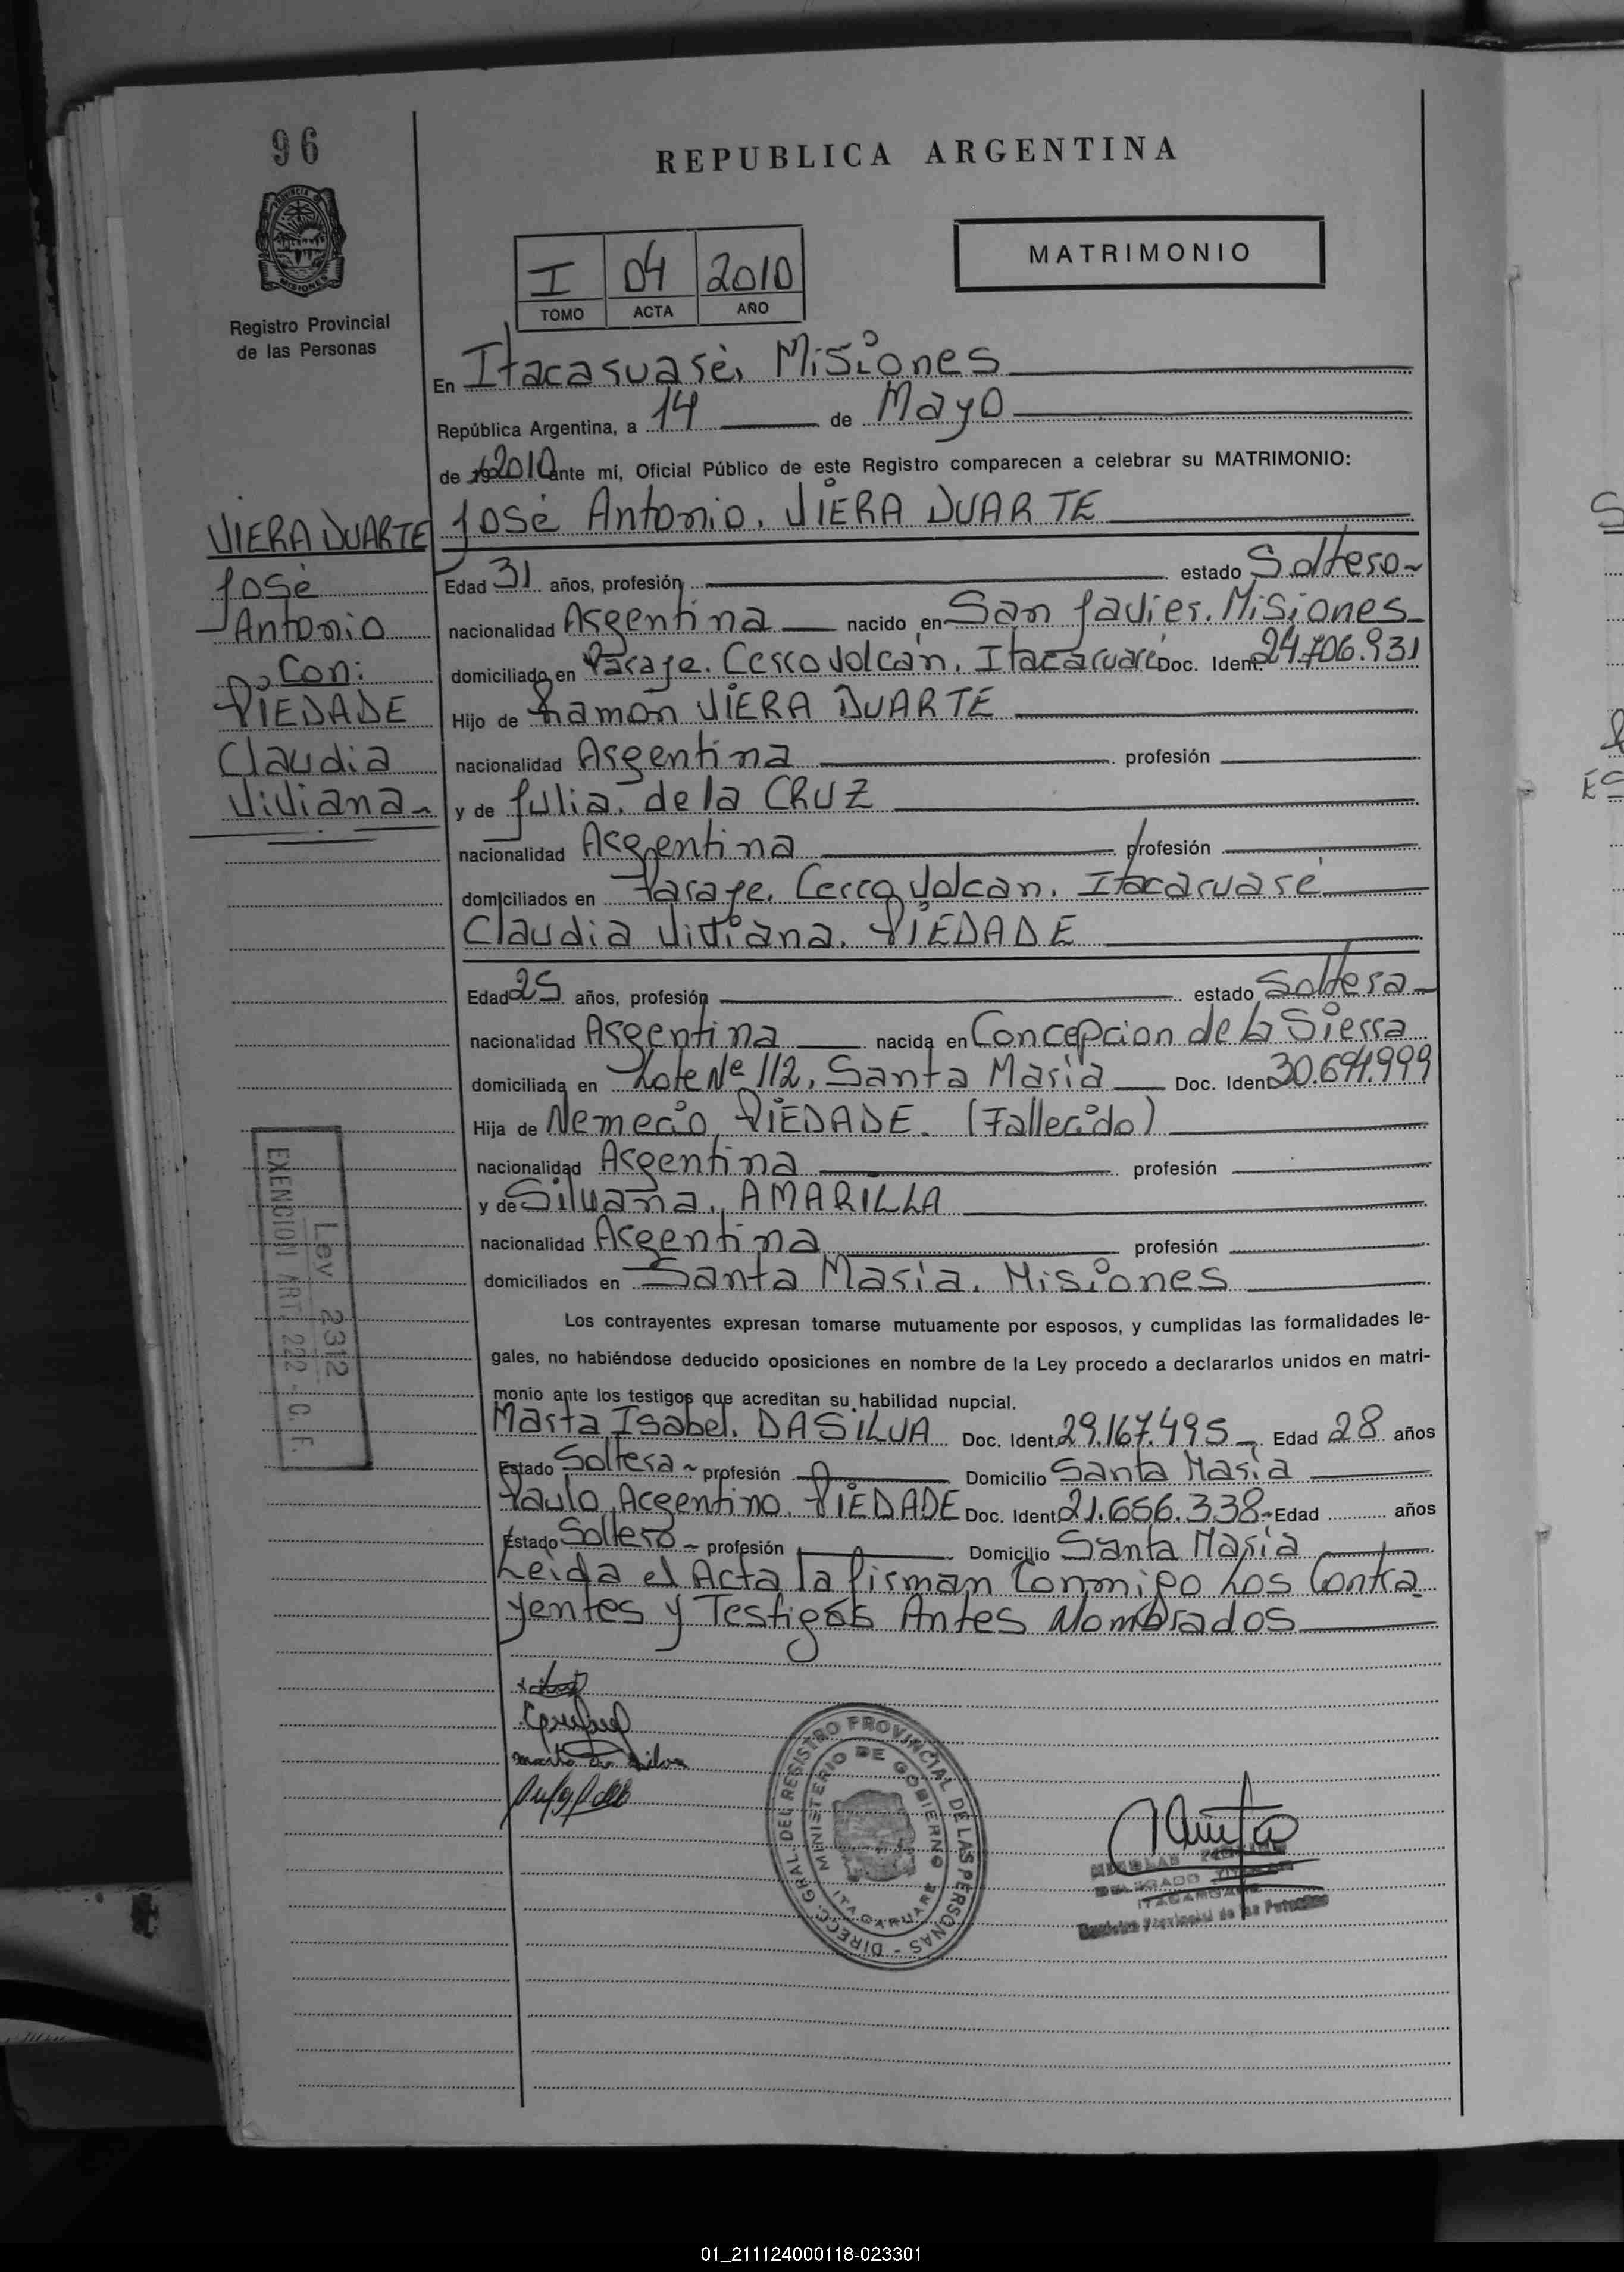 96
REPUBLICA ARGENTINA
MATRIMONIO
I 04 2010
TOMO ACTA AÑO
Registro Provincial
de las Personas
En Itacaruaré, Misiones
República Argentina, a 14 de Mayo
de 2010 ante mí, Oficial Público de este Registro comparecen a celebrar su MATRIMONIO:
VIERA DUARTE
José
Antonio
Con:
PIEDADE
Claudia
Viviana
José Antonio. VIERA DUARTE
Edad 31 años, profesión estado Soltero
nacionalidad Argentina nacido en San Javier. Misiones
domiciliado en Paraje. Cerro Volcán. Itacaruaré Doc. Ident. 24.706.931
Hijo de Ramon VIERA DUARTE
nacionalidad Argentina profesión
y de Julia. de la CRUZ
nacionalidad Argentina profesión
domiciliados en Paraje. Cerro Volcan. Itacaruaré
Claudia Viviana. PIEDADE
Edad 25 años, profesión estado Soltera
nacionalidad Argentina nacida en Concepcion de la Sierra
domiciliada en Lote Nº 112, Santa Maria Doc. Ident 30.694.999
Hija de Nemecio PIEDADE. (Fallecido)
nacionalidad Argentina profesión
y de Silvana. AMARILLA
nacionalidad Argentina profesión
domiciliados en Santa Maria. Misiones
Ley 2312
EXENCION ART. 222 - C.F.
Los contrayentes expresan tomarse mutuamente por esposos, y cumplidas las formalidades le-
gales, no habiéndose deducido oposiciones en nombre de la Ley procedo a declararlos unidos en matri-
monio ante los testigos que acreditan su habilidad nupcial.
Marta Isabel. DASILVA Doc. Ident. 29.167.495 Edad 28 años
Estado Soltera profesión Domicilio Santa Maria
Paulo Argentino. PIEDADE Doc. Ident 21.656.338 Edad años
Estado Soltero profesión Domicilio Santa Maria
Leida el Acta la firman Conmigo Los Contra
yentes y Testigos Antes Nombrados
DIRECC. GRAL. DEL REGISTRO PROVINCIAL DE LAS PERSONAS
MINISTERIO DE GOBIERNO
ITACARUARE
ITACARUARE
01_211124000118-023301